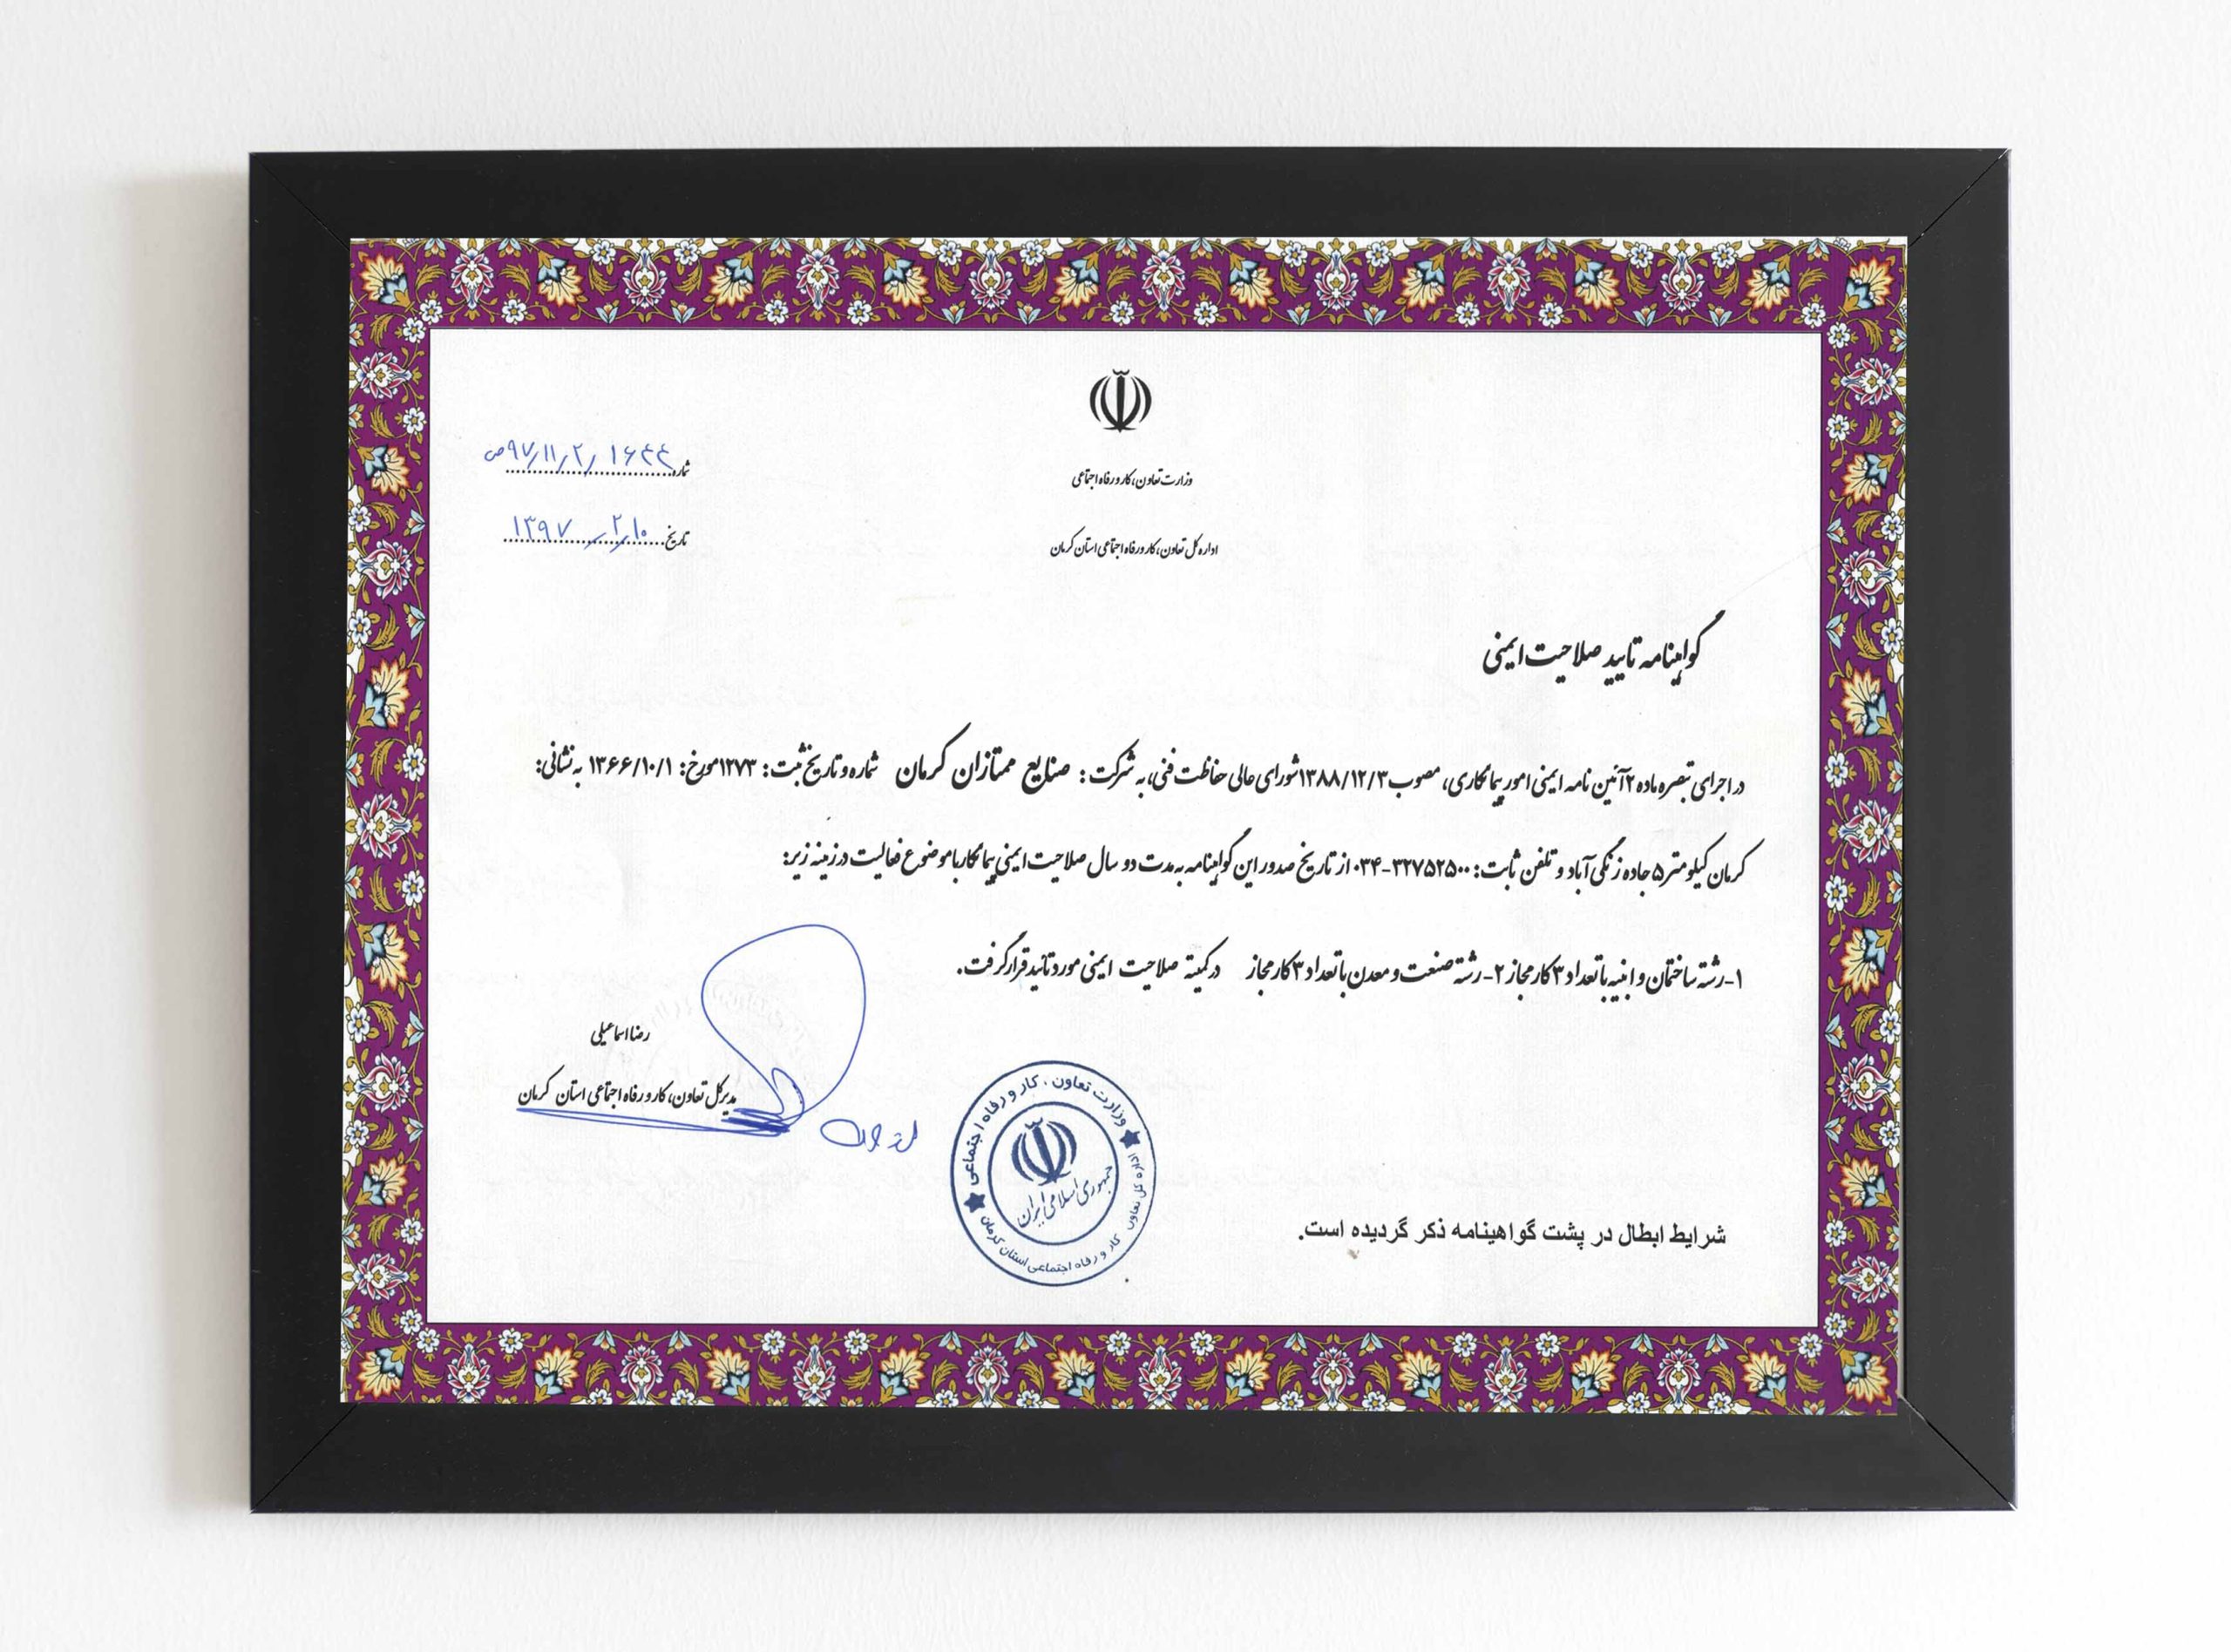 وزارت تعاون، کار و رفاه اجتماعی
اداره کل تعاون، کار و رفاه اجتماعی استان کرمان
شماره ۹۷/۱۱/۲/۱۶۴۴ ص
تاریخ ۱۳۹۷/۲/۱۰
گواهینامه تایید صلاحیت ایمنی
در اجرای تبصره ماده ۲ آئین نامه ایمنی امور پیمانکاری، مصوب ۱۳۸۸/۱۲/۳ شورای عالی حفاظت فنی، به شرکت: صنایع ممتازان کرمان شماره و تاریخ ثبت: ۱۲۷۳ مورخ: ۱۳۶۶/۱۰/۱ به نشانی:
کرمان کیلومتر ۵ جاده زنگی آباد و تلفن ثابت: ۳۲۷۵۲۵۰۰-۰۳۴ از تاریخ صدور این گواهینامه به مدت دو سال صلاحیت ایمنی پیمانکار با موضوع فعالیت در زمینه زیر:
۱-رشته ساختمان و ابنیه با تعداد ۳ کار مجاز ۲-رشته صنعت و معدن با تعداد ۳ کار مجاز در کمیته صلاحیت ایمنی مورد تائید قرار گرفت.
رضا اسماعیلی
مدیرکل تعاون، کار و رفاه اجتماعی استان کرمان
وزارت تعاون، کار و رفاه اجتماعی
جمهوری اسلامی ایران
اداره کل تعاون کار و رفاه اجتماعی استان کرمان
شرایط ابطال در پشت گواهینامه ذکر گردیده است.